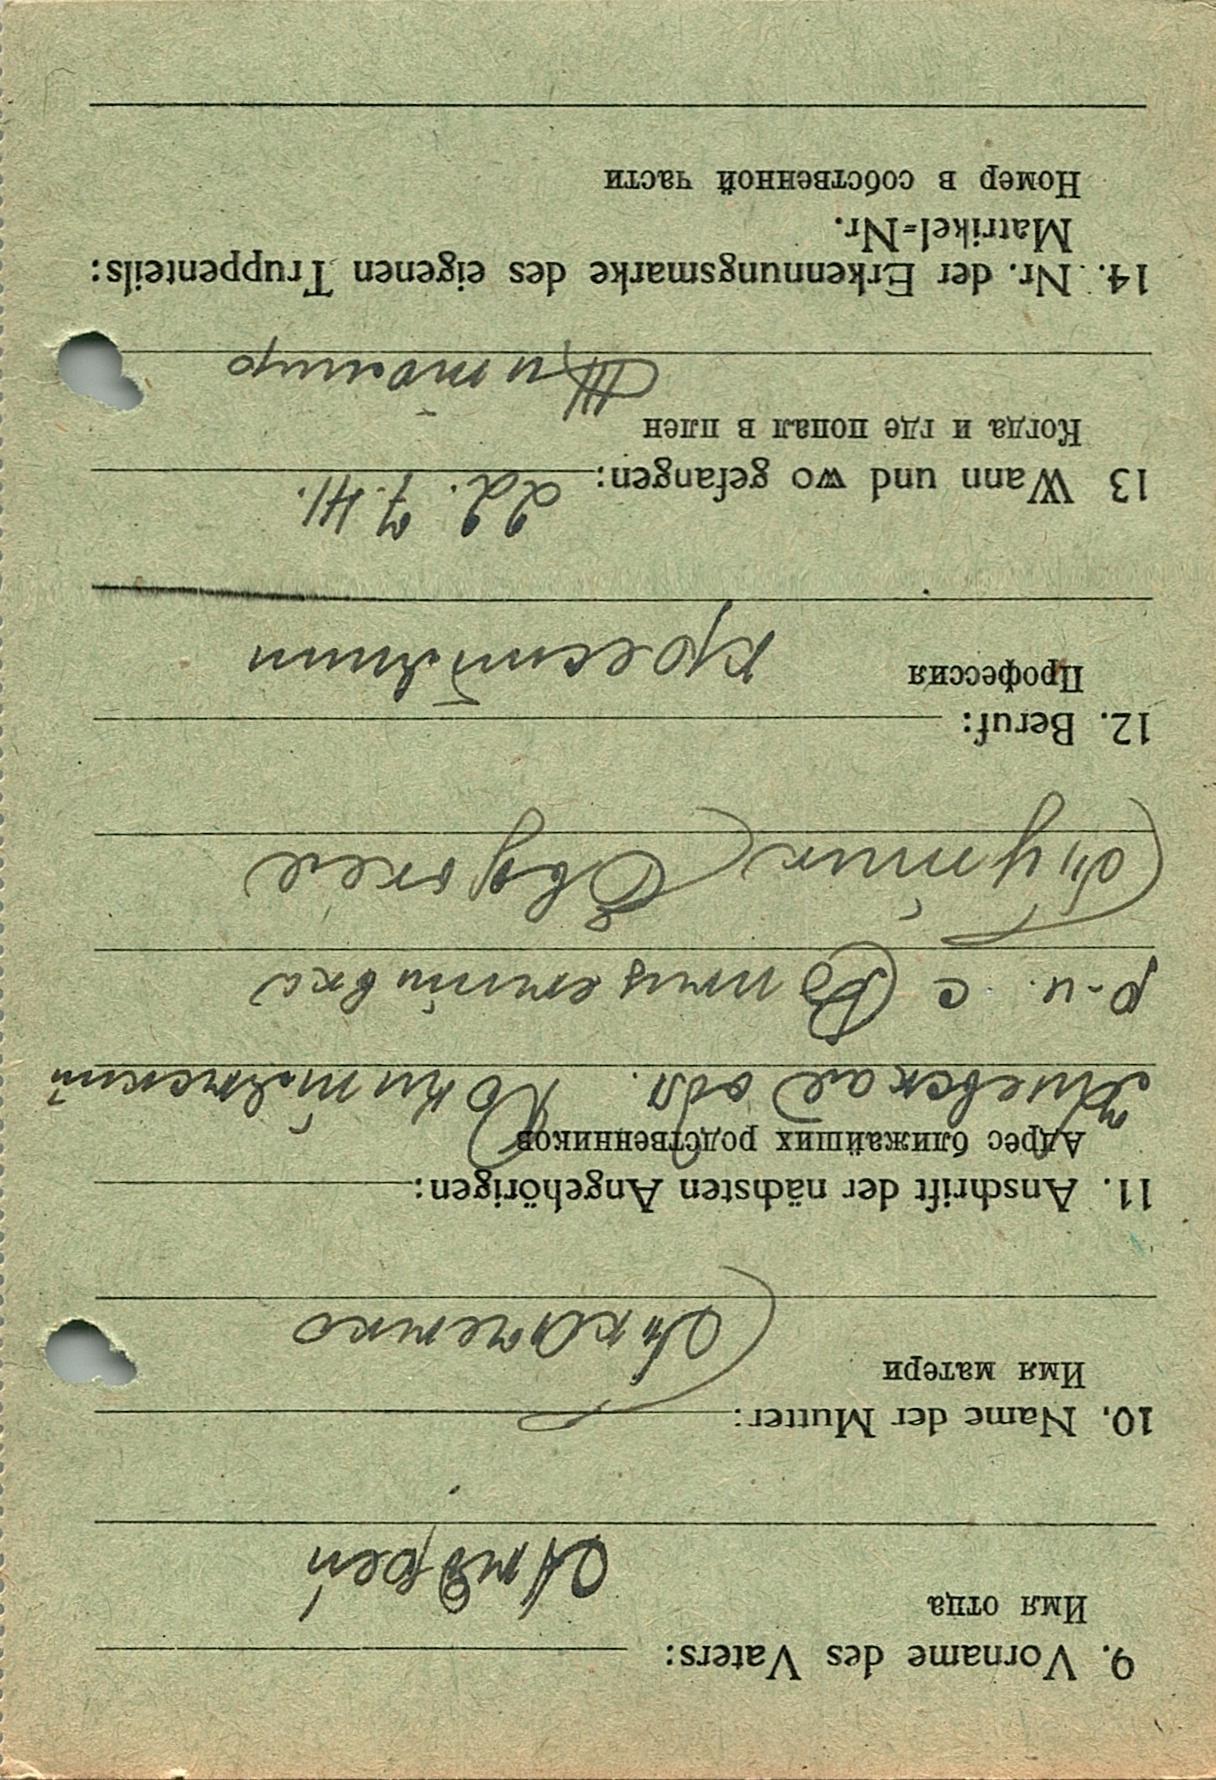 9. Vorname des Vaters:
Имя отца
Андрей
10. Name der Mutter:
Имя матери
Ткаченко
11. Anschrift der nächsten Angehörigen:
Адрес ближайших родственников
Киевская обл.
р-н. с
Евдокея
12. Beruf:
Профессия
крестянин
13 Wann und wo gefangen: 22. 7. 41.
Когда и где попал в плен
Житомир
14. Nr. der Erkennungsmarke des eigenen Truppenteils:
Matrikel-Nr.
Номер в собственной части